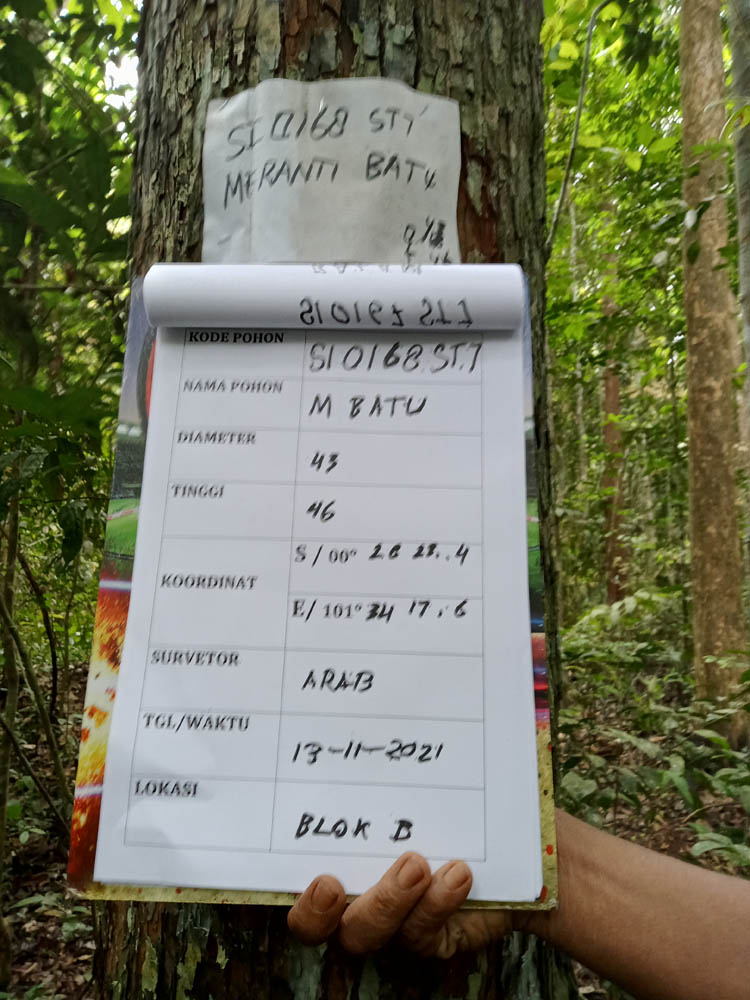 SI 0168 ST7
MERANTI BATU
KODE POHON SI 0168 ST.7
NAMA POHON M BATU
DIAMETER 43
TINGGI 46
KOORDINAT S / 00° 26 23..4
E/ 101° 34 17.6
SURVETOR ARAB
TGL/WAKTU 13-11-2021
LOKASI BLOK B